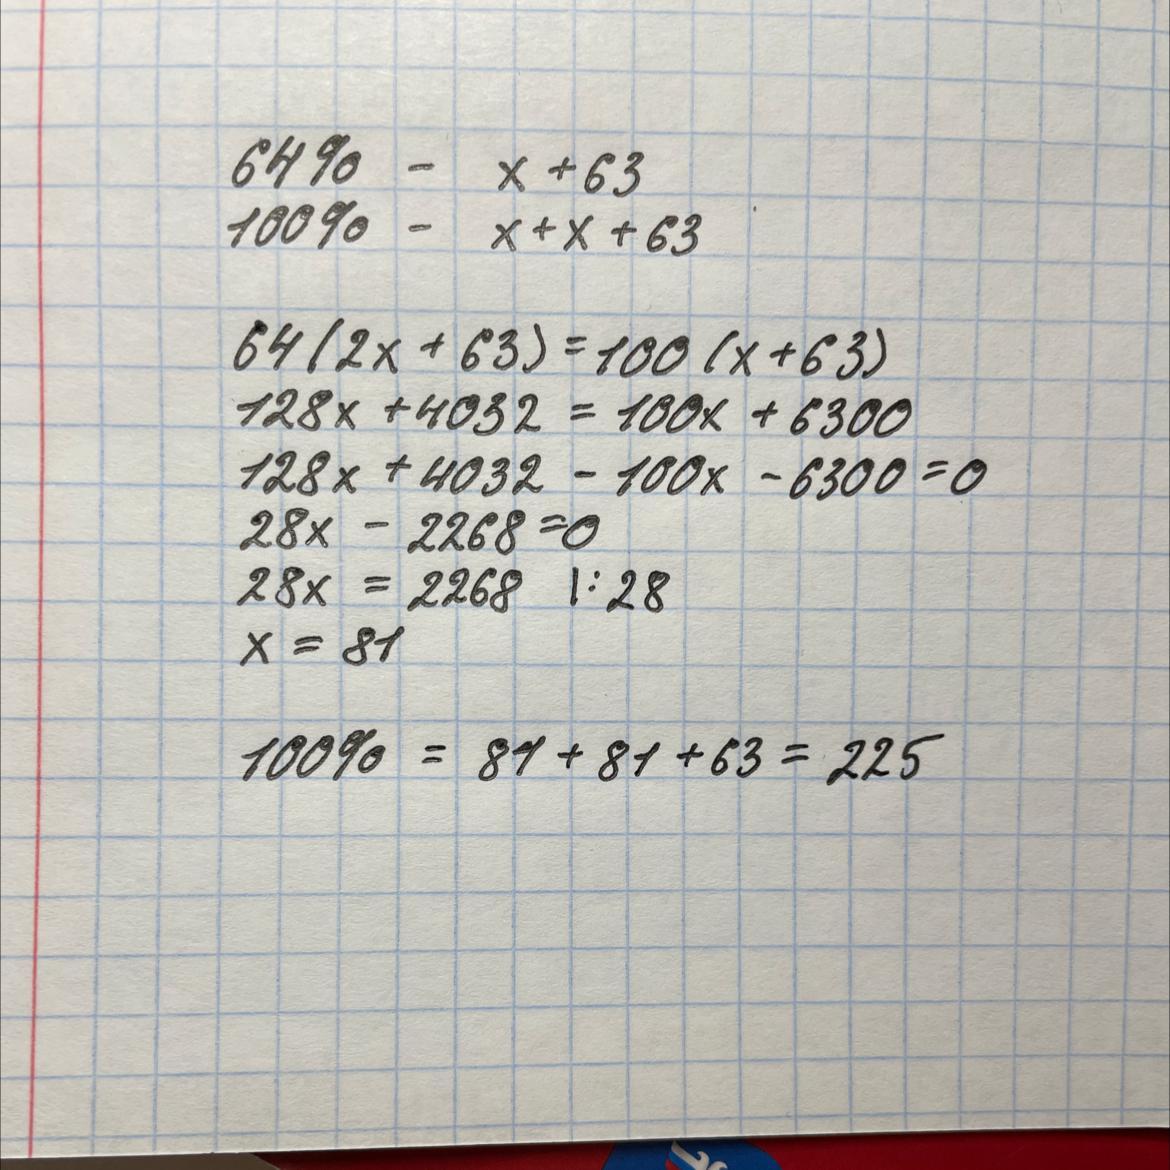 64% - x + 63
100% - x + x + 63
64(2x + 63) = 100(x + 63)
128x + 4032 = 100x + 6300
128x + 4032 - 100x - 6300 = 0
28x - 2268 = 0
28x = 2268 |: 28
x = 81
100% = 81 + 81 + 63 = 225